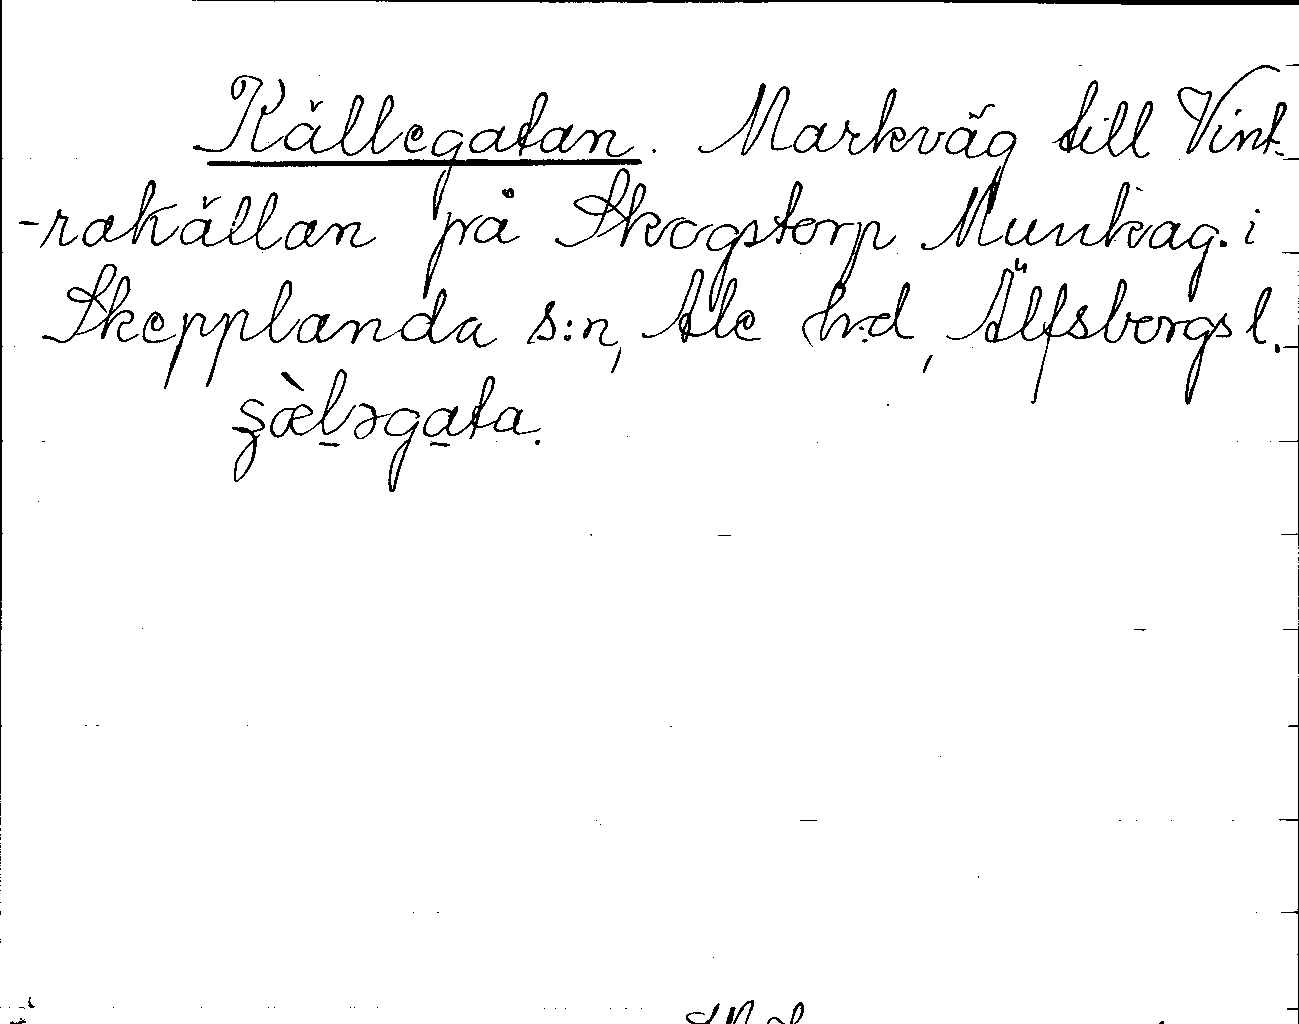 Källegatan. Markväg till Vint-
-rakällan på Skogstorp Munkag. i
Skepplanda s:n, Ale h:d, Älfsborgs l.
s̨æ̀l̠əga̠ta.